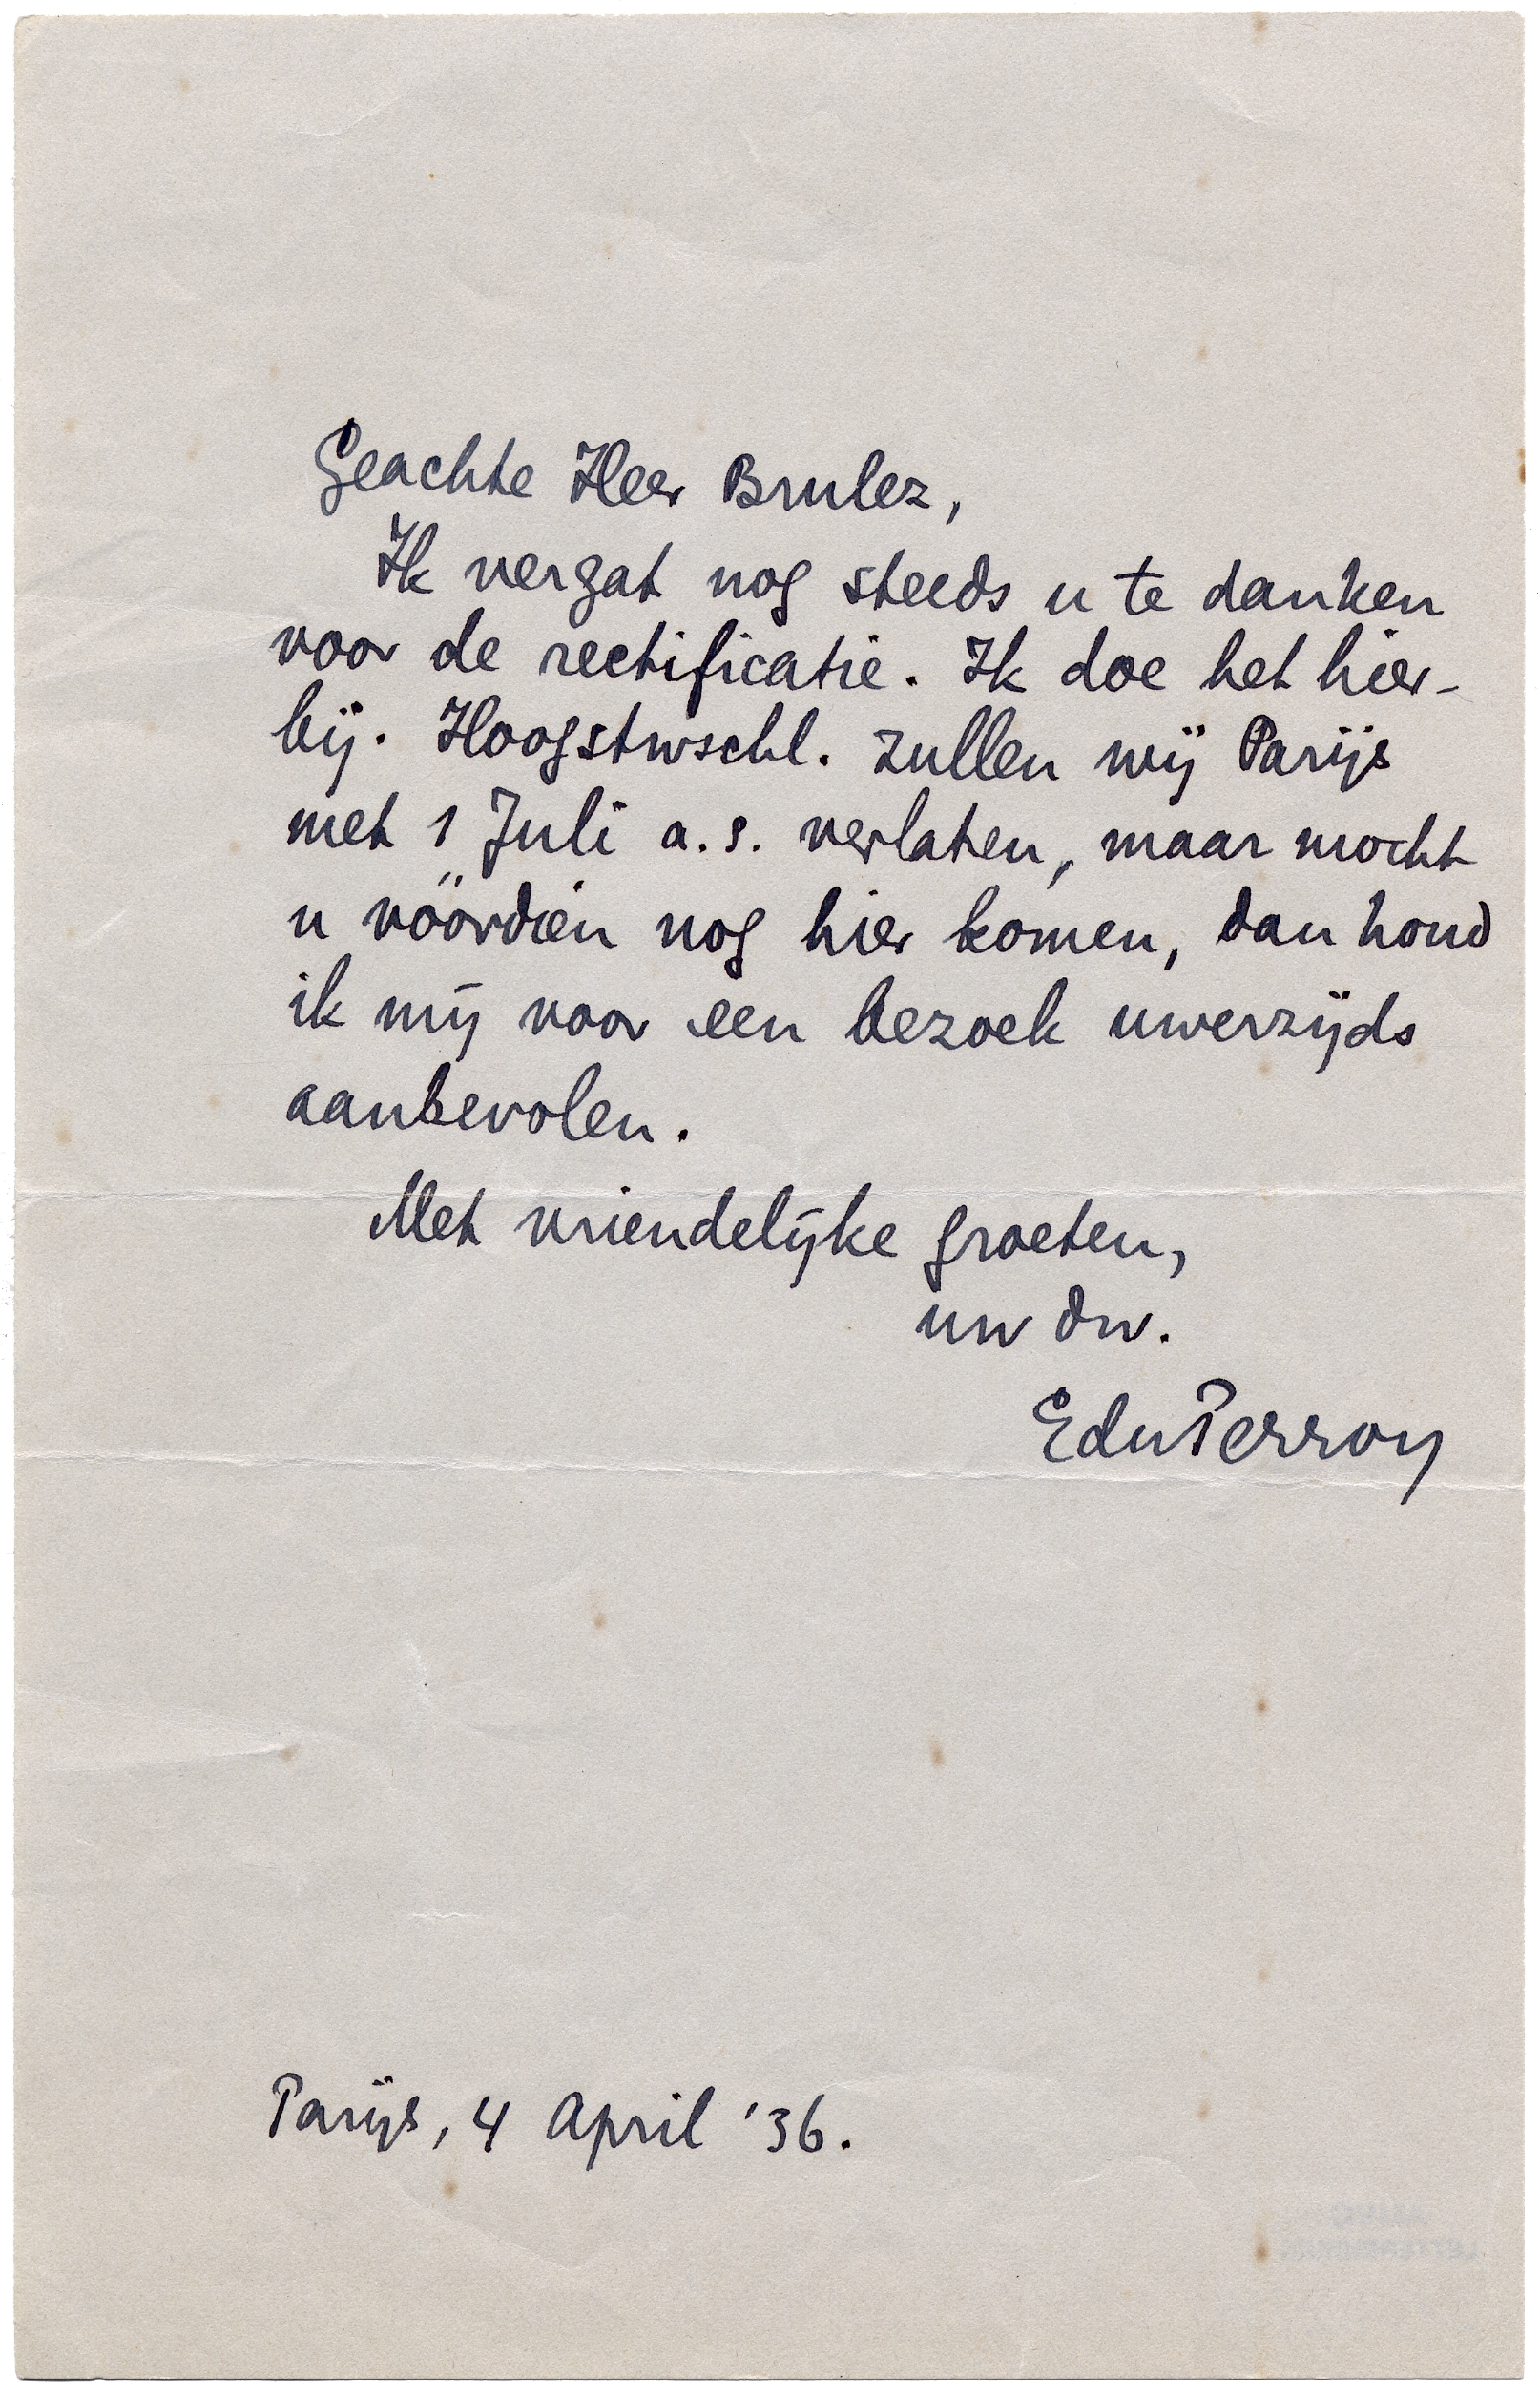 Geachte Heer Brulez,
Ik vergat nog steeds u te danken
voor de rectificatie. Ik doe het hier-
bij. Hoogstwschl. zullen wij Parijs
met 1 Juli a.s. verlaten, maar mocht
u vóórdien nog hier komen, dan houd
ik mij voor een bezoek uwerzijds
aanbevolen.
Met vriendelijke groeten,
uw dw.
EduPerron
Parijs, 4 April '36.